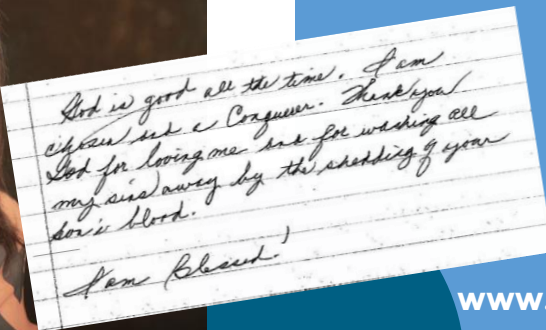 God is good all the time. I am
chosen and a Conqueror. Thank you
God for loving me and for washing all
my sins away by the shedding of your
son's blood.
I am Blessed!
www.